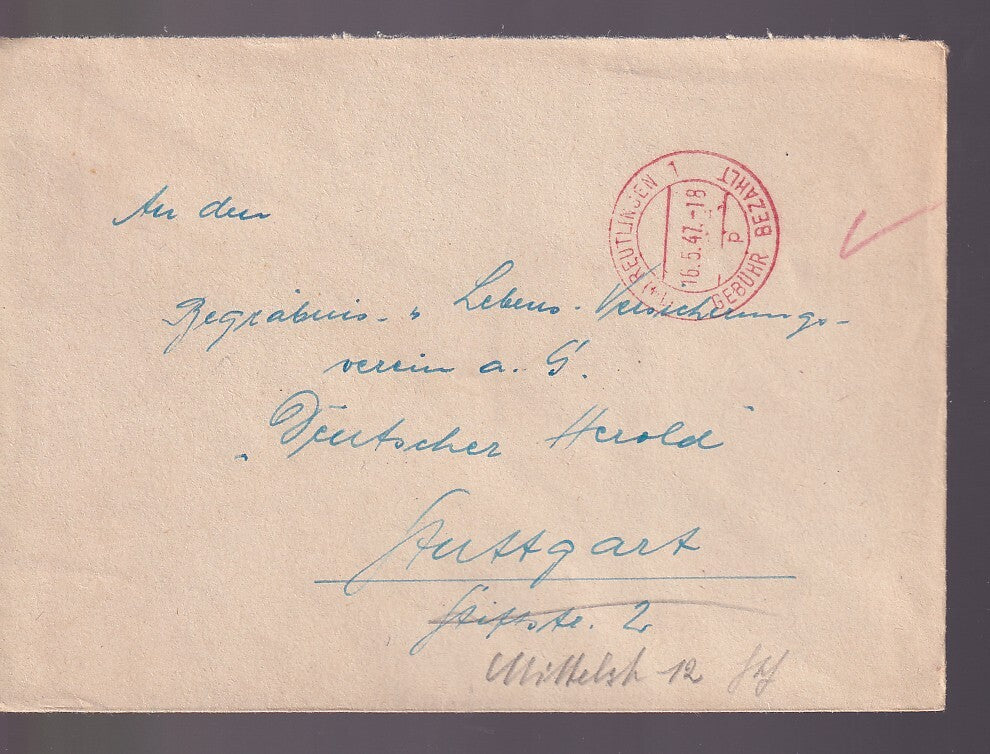 (14b) REUTLINGEN 1
GEBÜHR BEZAHLT
16.5.47.-18
p
An den
Begräbnis- u. Lebens-Versicherungs-
verein a. G.
"Deutscher Herold"
Stuttgart
Stiftstr. 2
Mittelstr 12